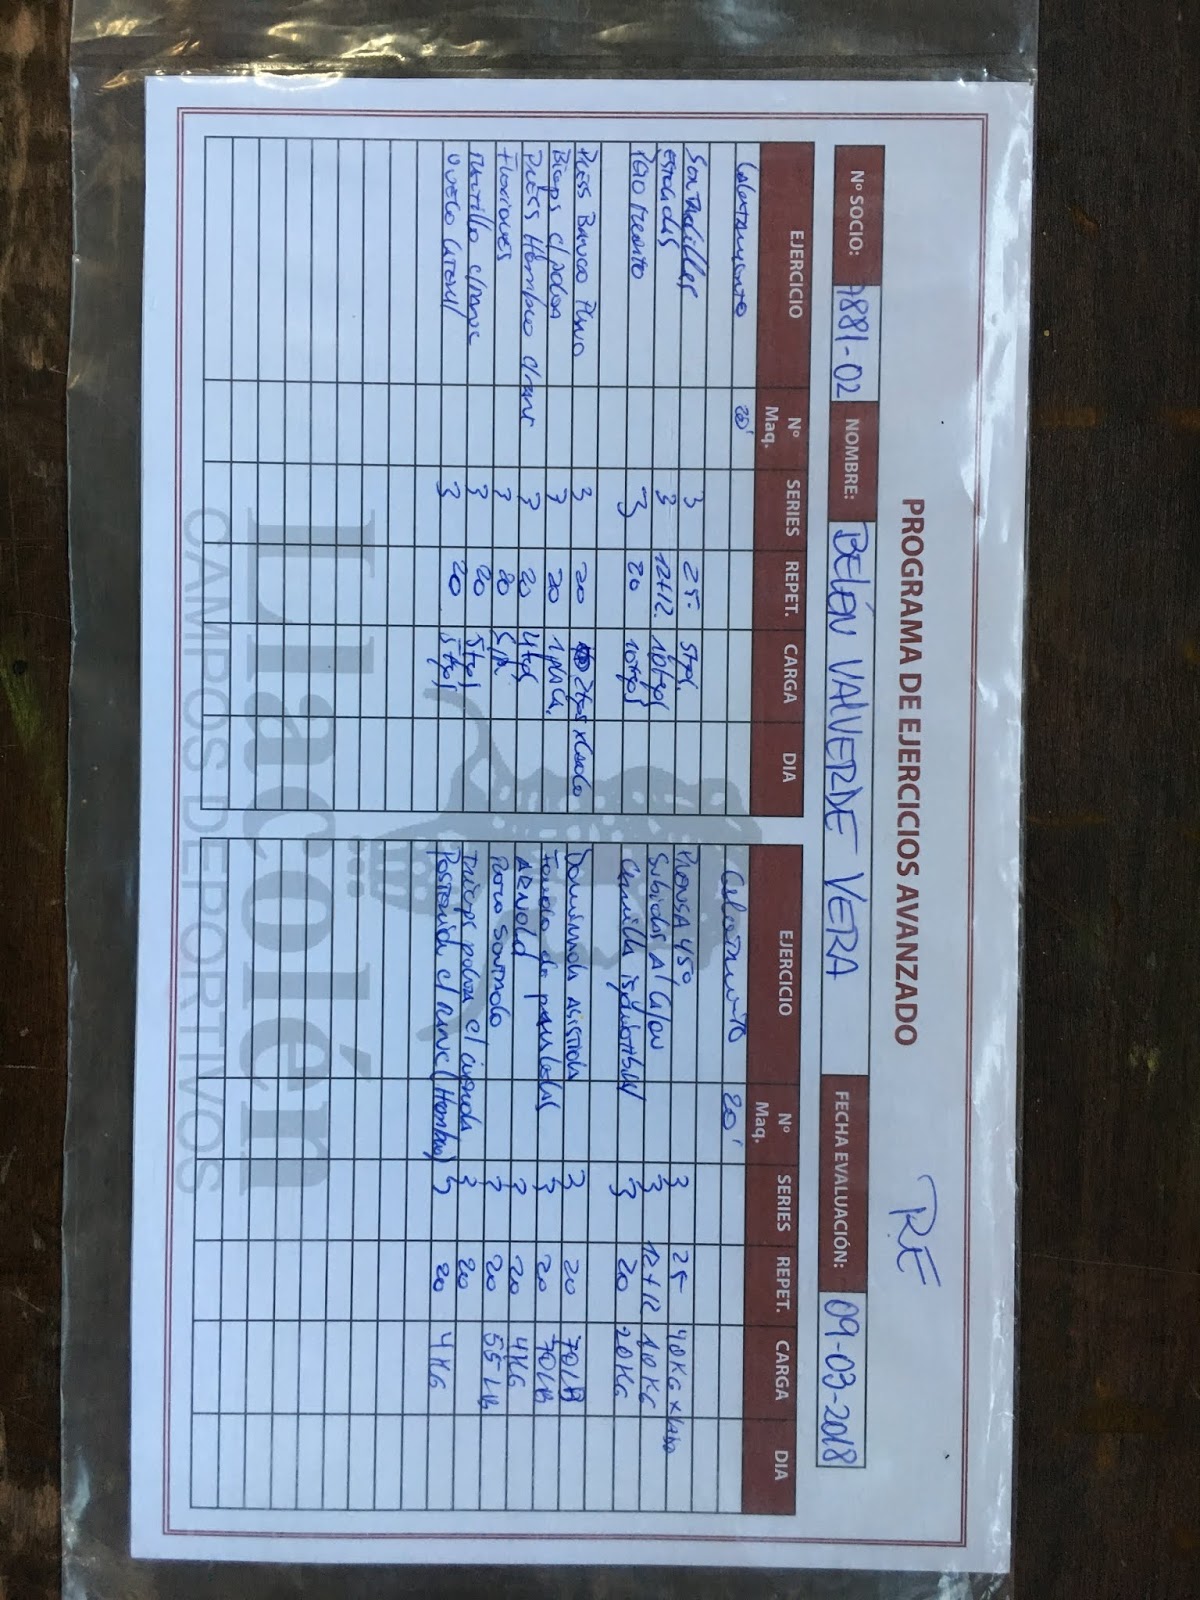 PROGRAMA DE EJERCICIOS AVANZADO
RE
Nº SOCIO: 7881-02 NOMBRE: BELÉN VALVERDE VERA FECHA EVALUACIÓN: 09-03-2018
EJERCICIO Nº Maq. SERIES REPET. CARGA DIA
Calentamiento 20'
Sentadillas 3 25 5kgs.
estocadas 3 12+12 10kgs
Peso muerto 3 20 10kgs
Press Banca Plano 3 20 2kgs x lado
Biceps c/polea 3 20 1 placa.
Press Hombro c/manc 3 20 4kgs
Flexiones 3 20 S/p
Martillo c/manc 3 20 5kgs
Vuelo lateral 3 20 5kgs
EJERCICIO Nº Maq. SERIES REPET. CARGA DIA
Calentamiento 20'
PRENSA 45º 3 25 40KG x lado
Subidas al cajon 3 12+12 10KG
Camilla isquiotibial 3 20 20KG
Dominada asistida 3 20 70LB
3 20 70LB
ARNOLD 3 20 4KG
Remo Sentado 3 20 55LB
Triceps polea c/cuerda 3 20
Posterior c/manc (Hombro) 3 20 4KG
Llacolén
CAMPOS DEPORTIVOS